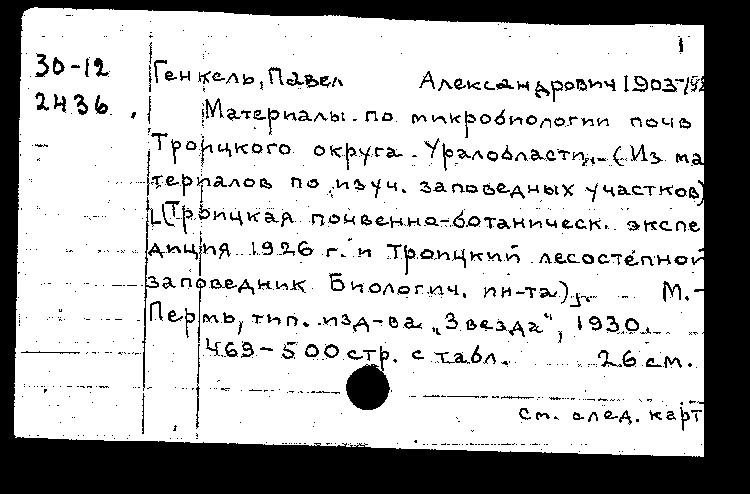 1
30-12
2436.
Генкель, Павел Александрович 1903-
Материалы по микробиологии почв
Троицкого округа Уралобласти. (Из ма
териалов по изуч. заповедных участков)
[(Троицкая почвенно-ботаническ. экспе
диция 1926 г. и Троицкий лесостепной
заповедник Биологич. ин-та)]. М.-
Пермь, тип. изд-ва "Звезда", 1930.
469-500 стр. с табл. 26 см.
см. след. карт